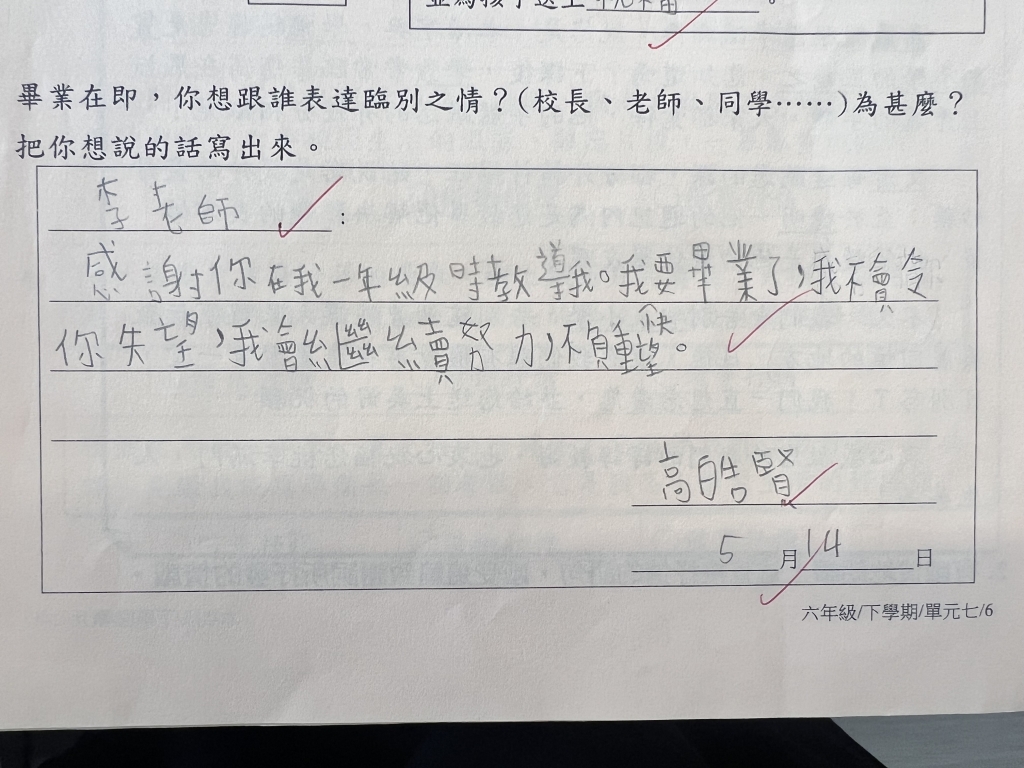 並為孩子送上祝福。
畢業在即，你想跟誰表達臨別之情？(校長、老師、同學……)為甚麼？
把你想說的話寫出來。
李老師：
感謝你在我一年級時教導我。我要畢業了，我不會令
你失望，我會繼續努力，不負重望。
高皓賢
5月14日
六年級/下學期/單元七/6